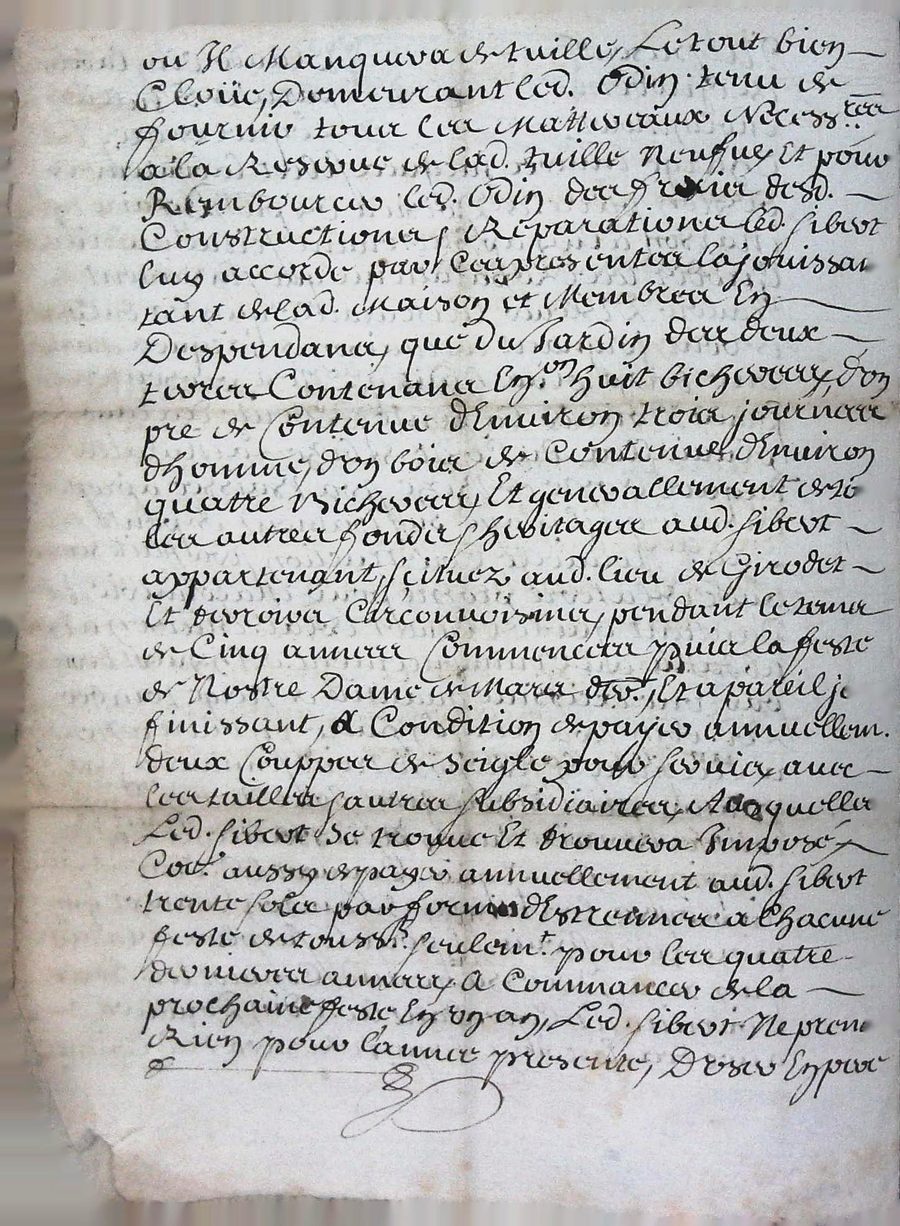 ou Il Manquera de tuille, Le tout bien
Cloüe, Demeurant led. Odin tenu de
fournir tous les Matteriaux Necess.res
a la Rescoue de lad. tuille Neuffue, Et pour
Rembourcer led. Odin des fraix desd.
Constructions, Reparations led. Sibert
luy accorde par Ces presentes la jouissan
tant de lad. Maison et Membres En
Despendans, que du Jardin des deux
terres Contenans En.on huit bicherees, d'un
pre de Contenue d'Environ trois journees
d'homme, d'un bois de Contenue d'Environ
quatre Bicherees, Et generallement de to
les autres fonds, heritages aud. Sibert
appartenant, scituez aud. lieu de Girodet
Et terroirs Circonvoisins, pendant le tems
de Cinq annees Commencees puis la feste
de Nostre Dame de Mars der., Et a pareil j
finissant, A Condition de payer annuellem.
deux Couppes de seigle pour servis, avec
les tailles, autres subsidiaires, Ausquelles
Led. Sibert se trouve Et trouvera Imposé,
Co.e aussy de payer annuellement aud. Sibert
trente sols par forme d'Estrennes a Chacune
feste de touss.ts seulem.t pour les quatre
dernieres annees, A Commancer de la
prochaine feste En un an, Led. Sibert Ne pren
Rien pour l'annee presente,